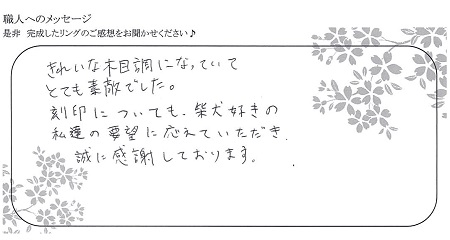 職人へのメッセージ
是非 完成したリングのご感想をお聞かせください♪
きれいな木目調になっていて
とても素敵でした。
刻印についても、柴犬好きの
私達の要望に応えていただき
誠に感謝しております。